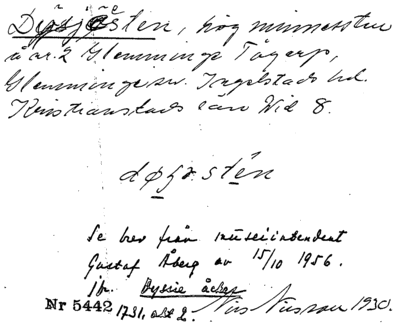 sten, hög minnessten
å nr. 2 Glemminge Tågarp,
Glemminge sn. Ingelstads hd.
Kristianstads län Wid 8.
Se brev från museiintendent
Gustaf Åberg av 15/10 1956.
Jfr. Dyssie åcker
Nr 5442 1731, akt 2. Nils Nilsson 1930.